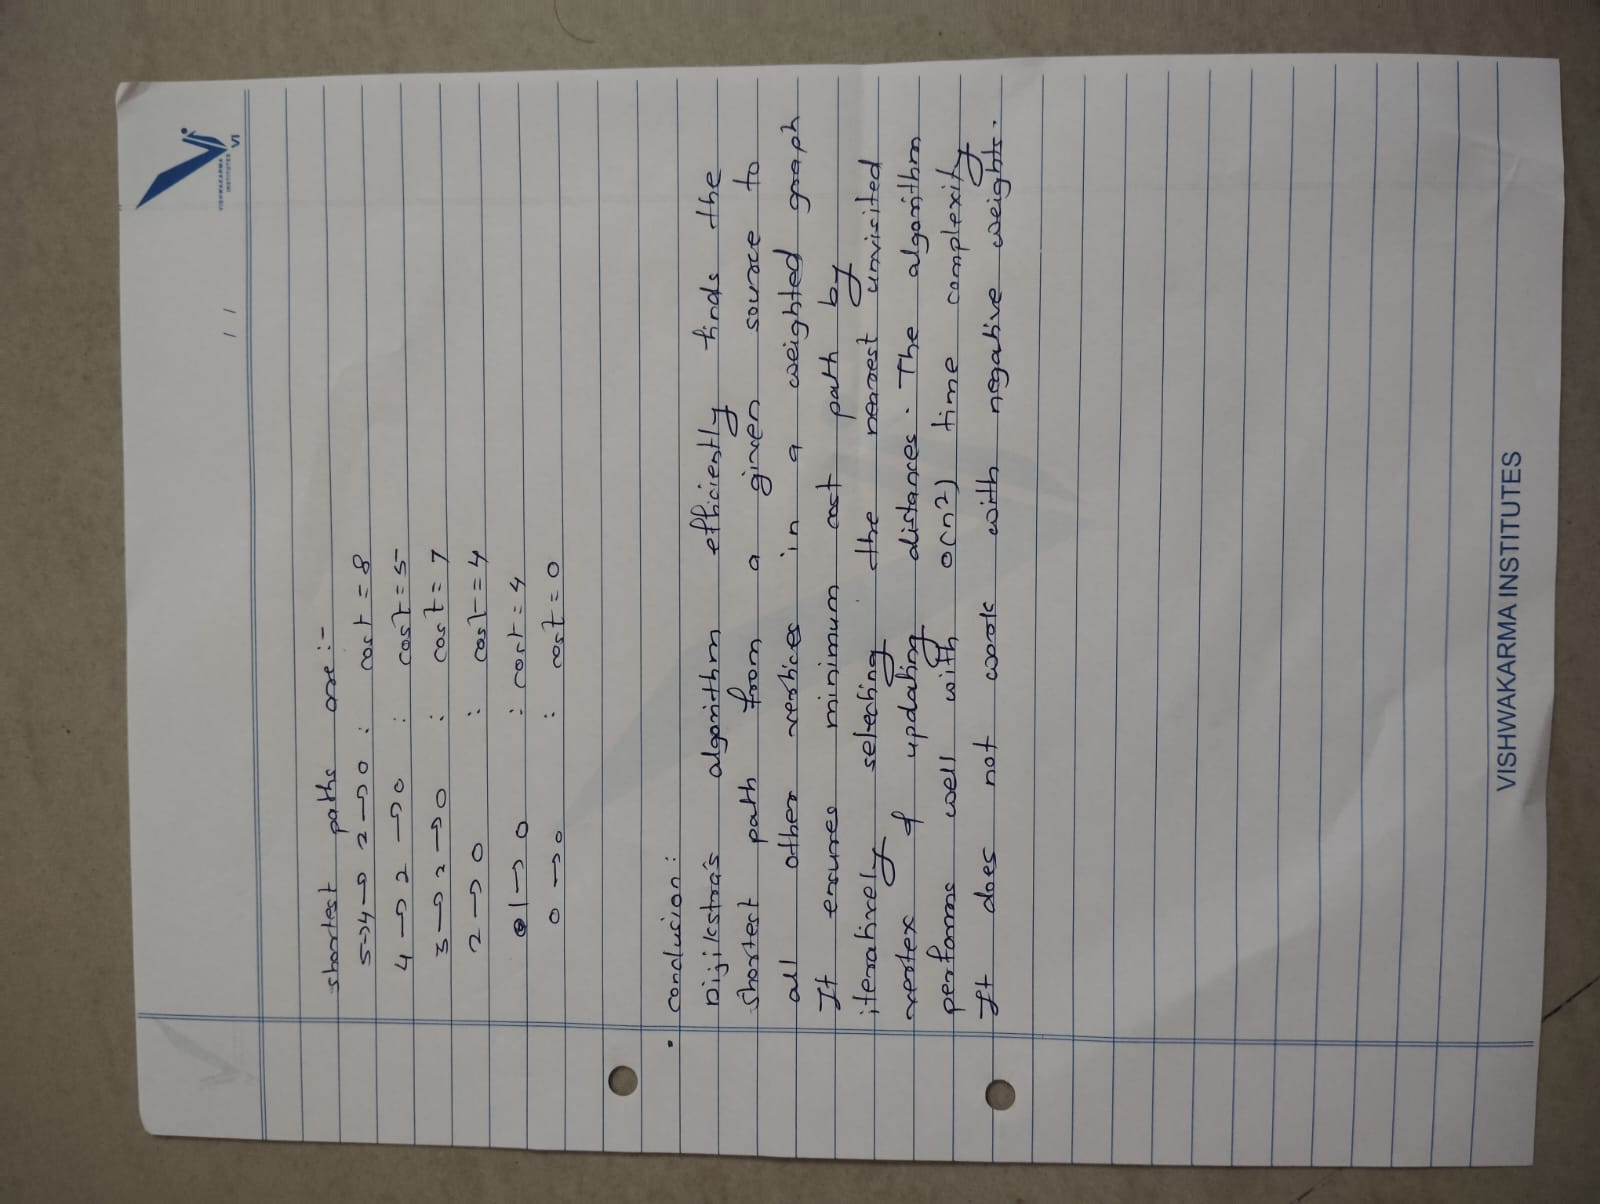 VISHWAKARMA
INSTITUTES
VI
/ /
shortest paths are :-
5→4→2→0 : cost = 8
4→2→0 : cost = 5
3→2→0 : cost = 7
2→0 : cost = 4
1→0 : cost = 4
0→0 : cost = 0
• conclusion :
Dijikstra's algorithm efficiently finds the
shortest path from a given source to
all other vertices in a weighted graph
It ensures minimum cost path by
iteratively selecting the nearest unvisited
vertex & updating distances. The algorithm
performs well with O(n2) time complexity
It does not work with negative weights.
VISHWAKARMA INSTITUTES